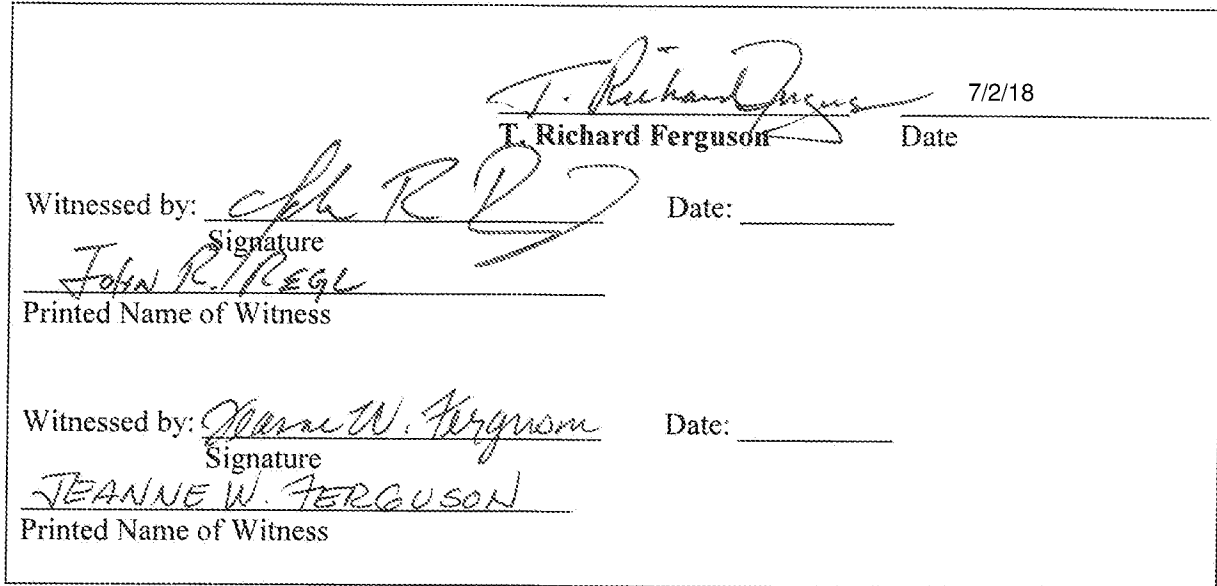 T. Richard Ferguson 7/2/18
T. Richard Ferguson Date
Witnessed by: Date:
Signature
John R.
Printed Name of Witness
Witnessed by: Jeanne W. Ferguson Date:
Signature
JEANNE W. FERGUSON
Printed Name of Witness